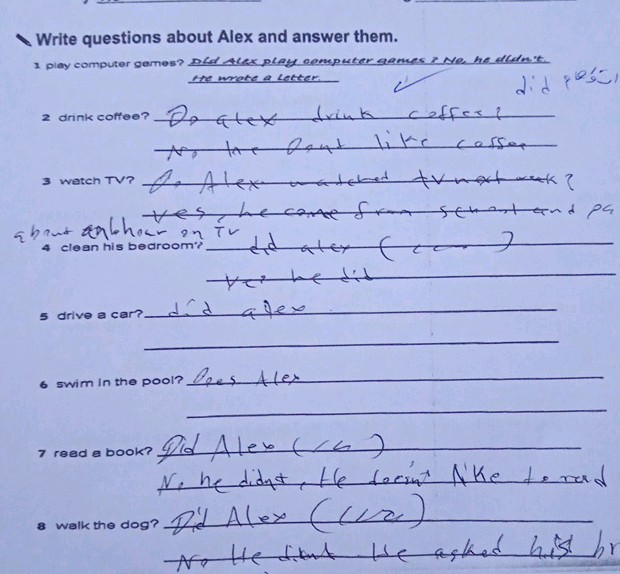 Write questions about Alex and answer them.
1 play computer games? Did Alex play computer games? No, he didn't.
He wrote a letter.
did
2 drink coffee? Do alex drink coffee?
No he Dont like coffee
3 watch TV? Do Alex watched tv next week?
Yes, he come from school and pa
about an hour on TV
4 clean his bedroom? did alex ( )
Yes he did
5 drive a car? did alex
6 swim in the pool? Does Alex
7 read a book? Did Alex ( )
No he didn't, He doesn't like to read
8 walk the dog? Did Alex ( )
No He didnt He asked his br